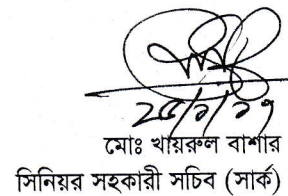 মোঃ খায়রুল বাশার
সিনিয়র সহকারী সচিব (সার্ক)